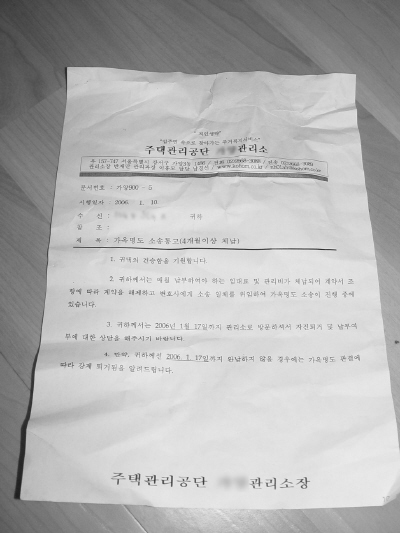 주택관리공단 관리소
문서번호 : 가양900 - 5
시행일자 2006. 1. 10
수 신 : 귀하
참 조 :
제 목 : 가옥명도 소송통고(4개월이상 체납)
1. 귀댁의 건승함을 기원합니다.
2. 귀하께서는 매월 납부하여야 하는 임대료 및 관리비가 체납되어 계약서 조
항에 따라 계약을 해제하고 변호사에게 소송 일체를 위임하여 가옥명도 소송이 진행 중에
있습니다.
3. 귀하께서는 2006년 1월 17일까지 관리소로 방문하셔서 자진퇴거 및 납부여
부에 대한 상담을 해주시기 바랍니다.
4. 만약, 귀하께서 2006. 1. 17일까지 완납하지 않을 경우에는 가옥명도 판결에
따라 강제 퇴거됨을 알려드립니다.
주택관리공단 관리소장